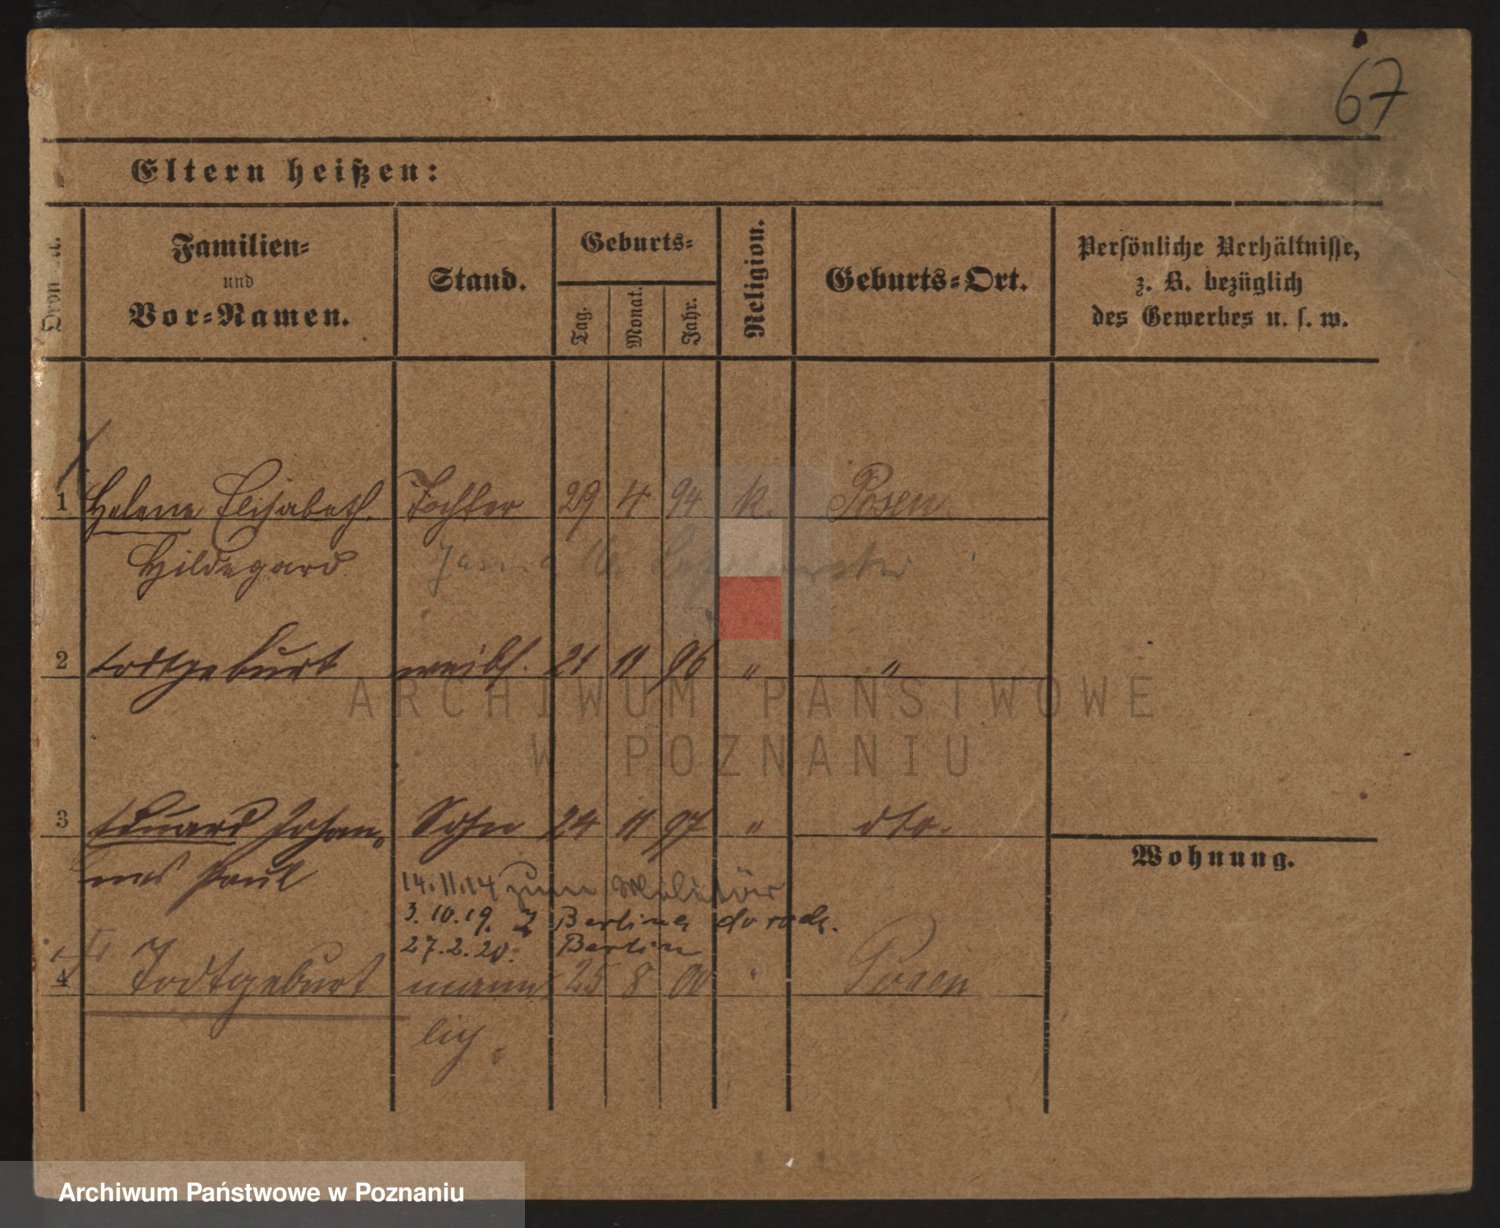 67
Eltern heißen:
Familien-
und
Vor-Namen.
Stand.
Geburts-
Tag.
Monat.
Jahr.
Religion.
Geburts-Ort.
Persönliche Verhältnisse,
z. B. bezüglich
des Gewerbes u. s. w.
1 Helene Elisabeth Tochter 29 4 94 k. Posen
Hildegard
2 todtgeburt weibl. 21 11 96 " "
ARCHIWUM PAŃSTWOWE
W POZNANIU
3 Eduard Johan- Sohn 24 11 97 " dto.
nes Paul
Wohnung.
14.11.14 zum Militär
3.10.19. Z Berlin
27.2.20. Berlin
4 Todtgeburt männ 25 8 00 " Posen
lich.
Archiwum Państwowe w Poznaniu